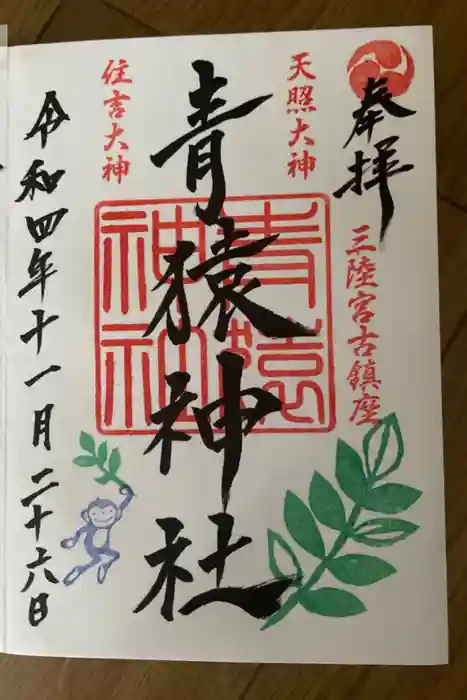 奉拝
三陸宮古鎮座
天照大神
青猿神社
青猿神社
住吉大神
令和四年十一月二十六日